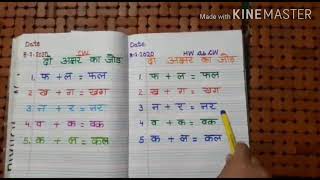 Made with KINEMASTER
Date
8-7-2020 CW
दो अक्षर का जोड़
1. फ + ल = फल
2. ख + ग = खग
3. न + र = नर
4. व + क = वक
5. क + ल = कल
Date
8-7-2020 HW as CW
दो अक्षर का जोड़
1. फ + ल = फल
2. ख + ग = खग
3. न + र = नर
4. व + क = वक
5. क + ल = कल